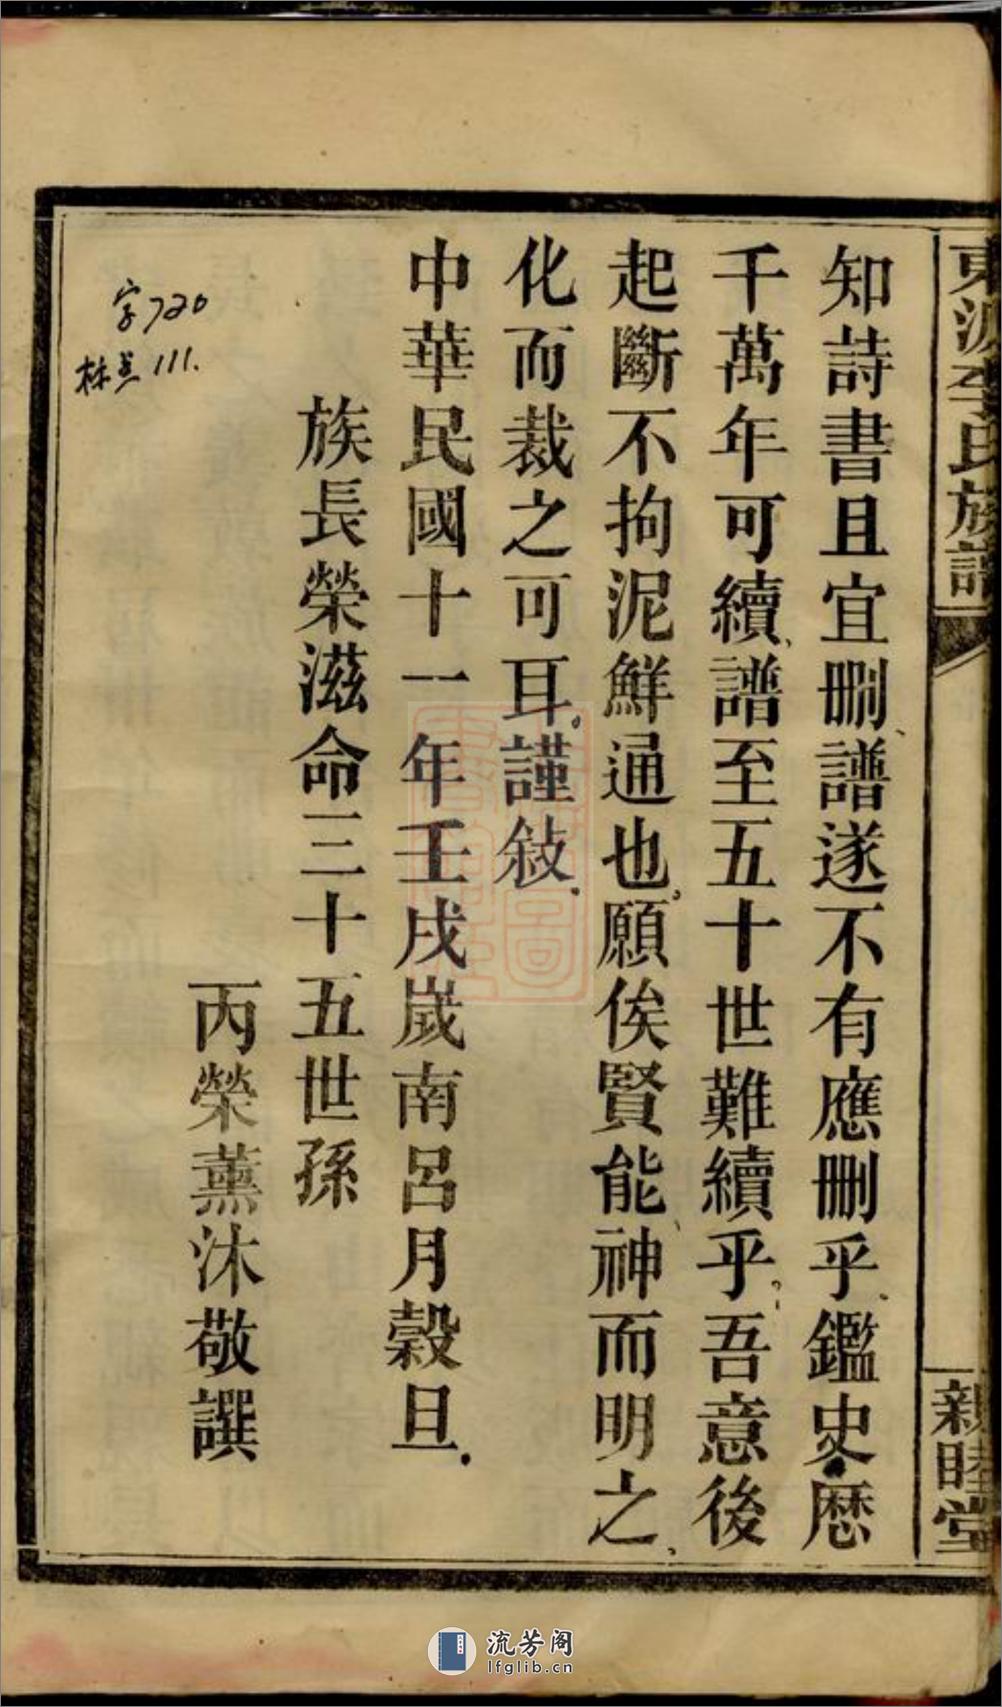 東源李氏族譜
親睦堂
知詩書且宜刪譜遂不有應刪乎鑑史歷
千萬年可續譜至五十世難續乎吾意後
起斷不拘泥鮮通也願俟賢能神而明之
化而裁之可耳謹敍
中華民國十一年壬戌嵗南呂月穀旦
族長榮滋命三十五世孫
丙榮薰沐敬譔
字720
標点111.
流芳阁
lfglib.cn